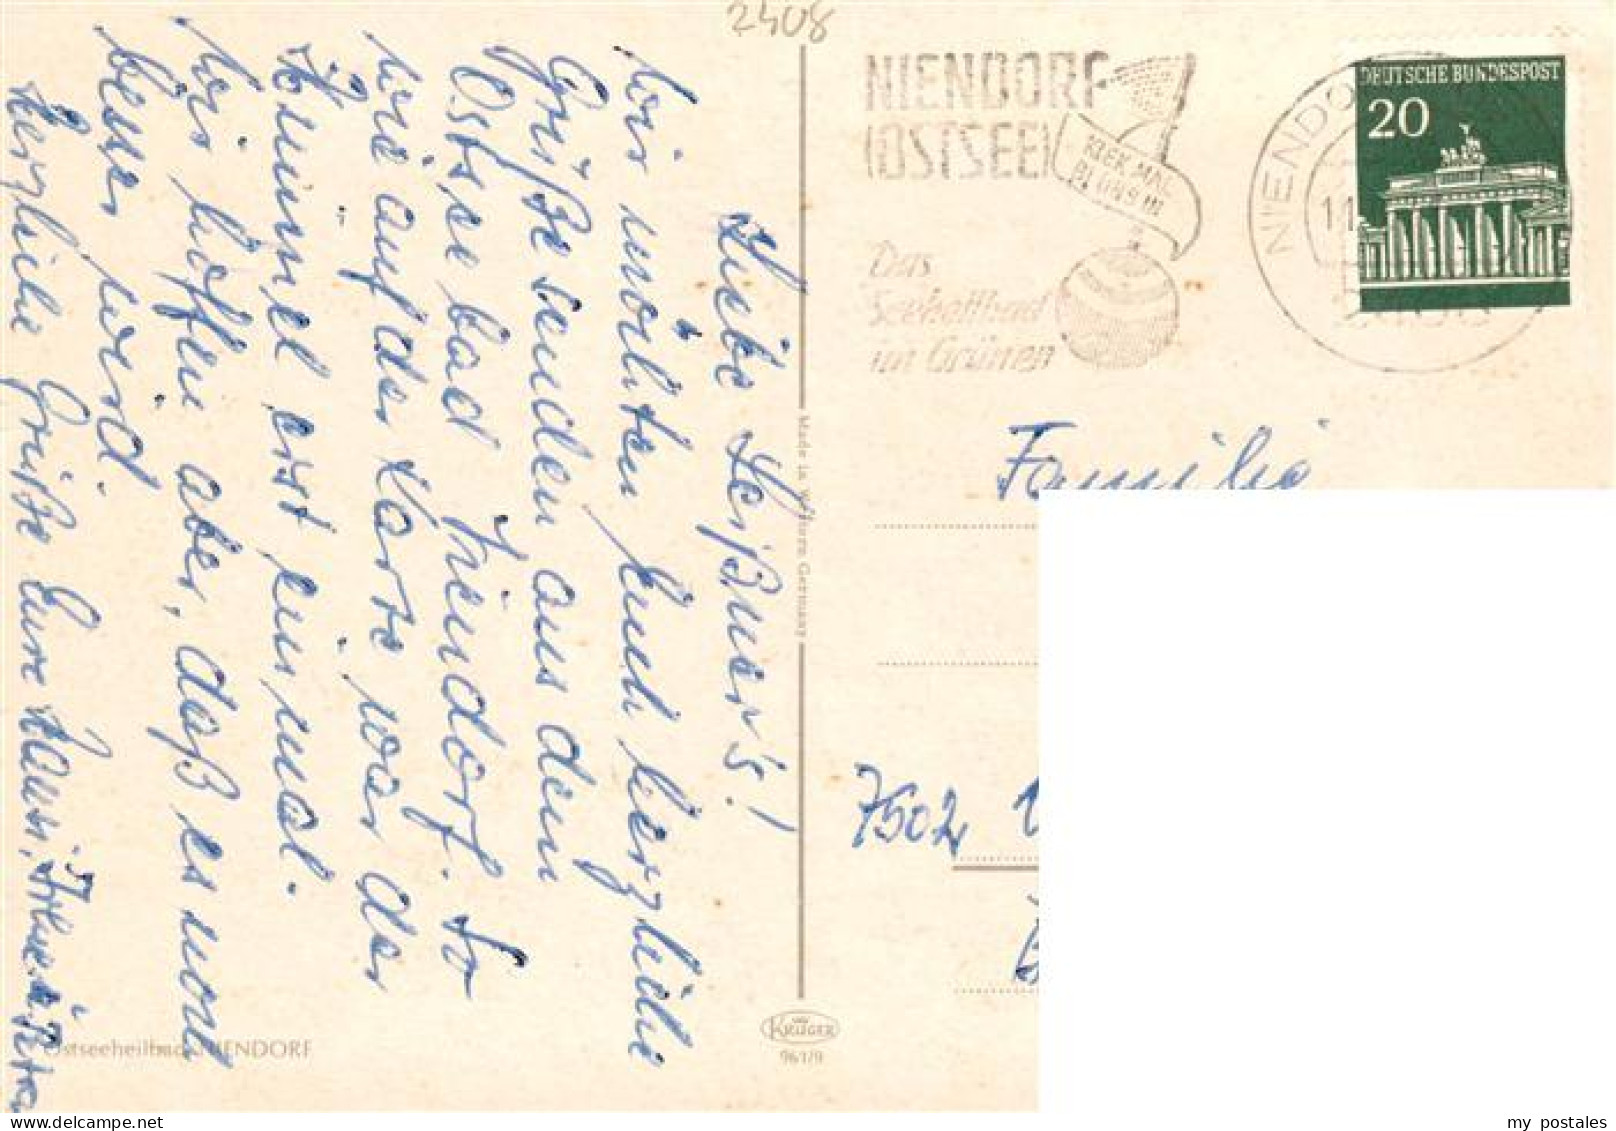 2408
NIENDORF
(OSTSEE)
KIEK MAL
BI UNS IN
Das
Seeheilbad
im Grünen
NIENDO
11
DEUTSCHE BUNDESPOST
20
Liebe Leißner's!
Wir möchten Euch herzliche
Grüße senden aus dem
Ostseebad Niendorf. So
wie auf der Karte war der
Himmel erst einmal.
Wir hoffen aber, daß es noch
besser wird.
Herzliche Grüße Eure Hansi, Irene u. Petra
Familie
7502
Made in Western Germany
KRÜGER
961/9
Ostseeheilbad NIENDORF
my postales